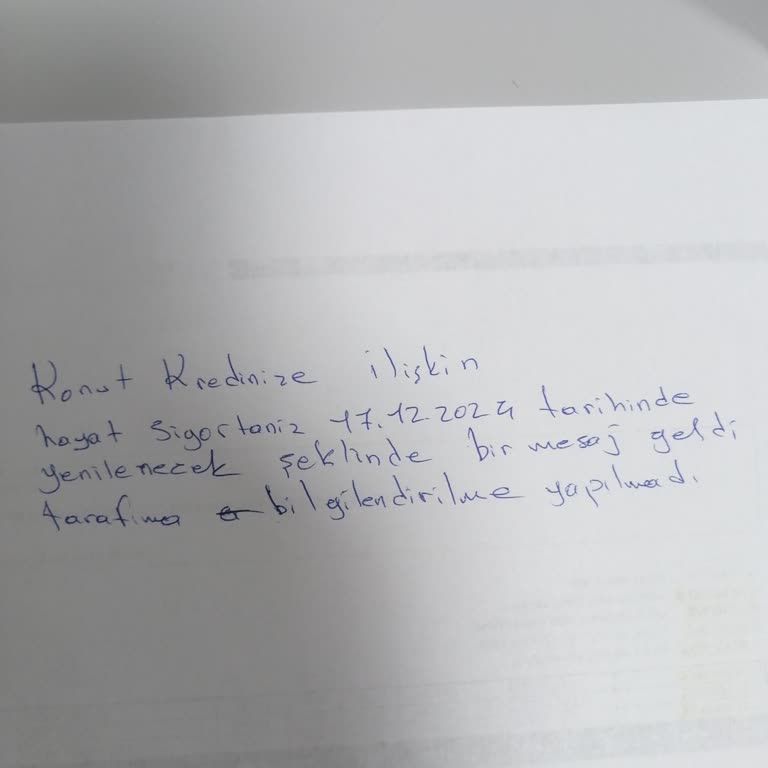 Konut Kredinize ilişkin
hayat Sigortanız 17.12 2024 tarihinde
yenilenecek şeklinde bir mesaj geldi
tarafıma bilgilendirilme yapılmadı.